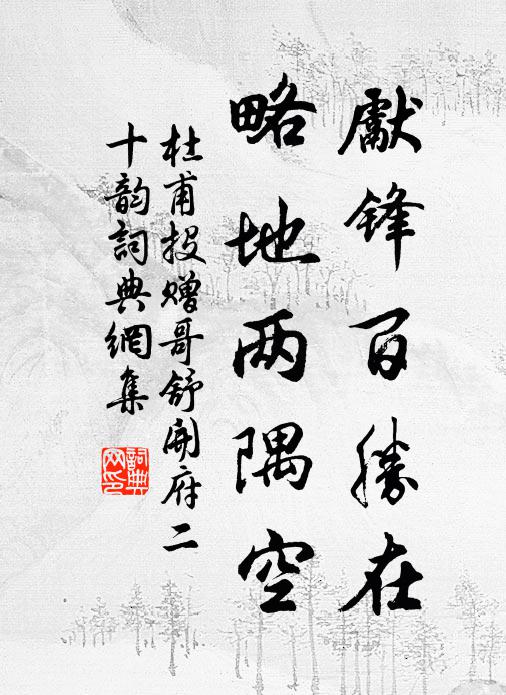 獻鋒百勝在
略地两隅空
杜甫投贈哥舒開府二
十韵詞典網集
詞典
网印